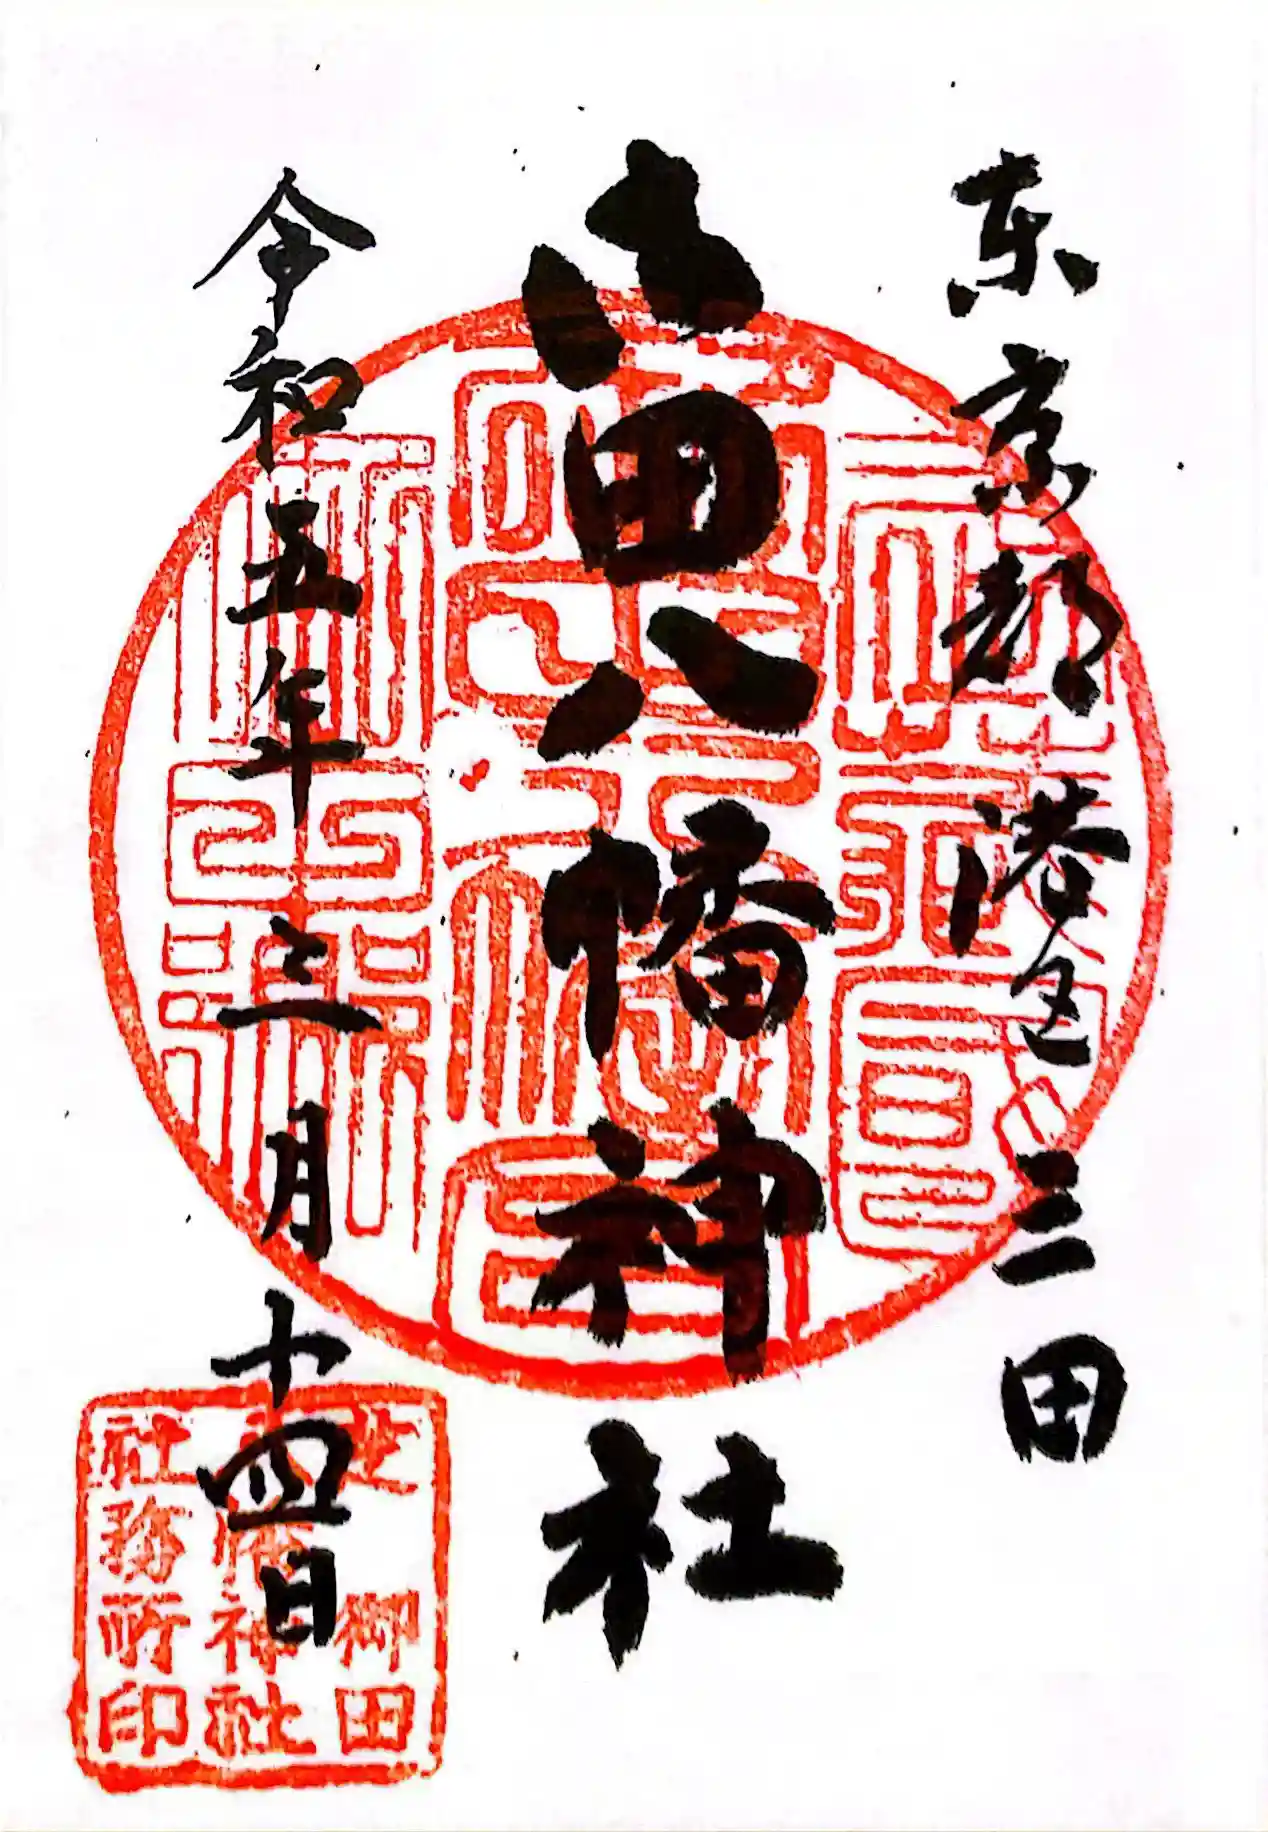 東京都港区三田
御田八幡神社
令和五年三月十四日
芝 御田
八幡神社
社務所印